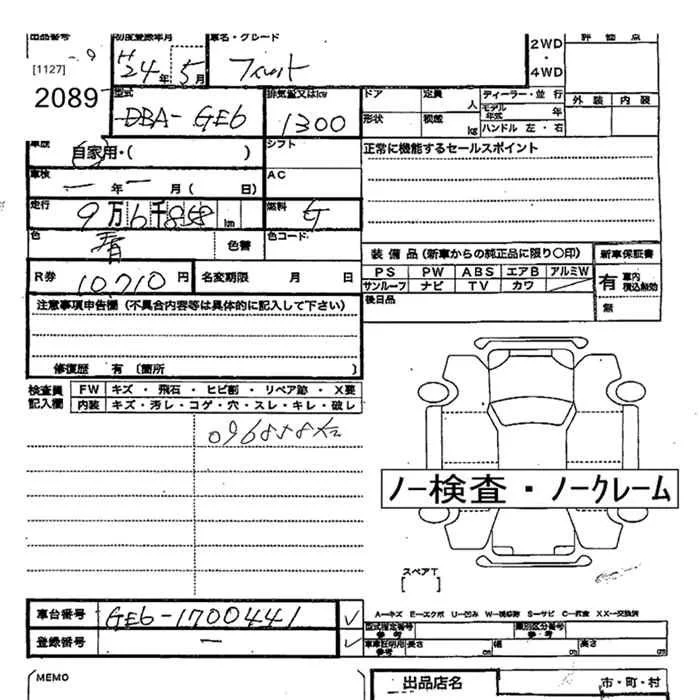 出品番号 初度登録年月 車名・グレード 2WD 評価点
[1127] H24年 5月 フィット ・
2089 4WD
型式 排気量又はkw ドア 定員 人 ディーラー・並行 外装 内装
DBA-GE6 1300 形状 積載 kg モデル年式 年
ハンドル 左・右
車歴 自家用・( ) シフト 正常に機能するセールスポイント
車検 ー年ー月( 日) AC
走行 9万6千858 km 燃料 G
色 青 色替 色コード 装備品(新車からの純正品に限り〇印) 新車保証書
R券 10,710円 名変期限 月 日 PS PW ABS エアB アルミW 有 車内積込無効
サンルーフ ナビ TV カワ
注意事項申告欄(不具合内容等は具体的に記入して下さい) 後日品 無
修復歴 有 〔箇所 〕
検査員記入欄 FW キズ・飛石・ヒビ割・リペア跡・X要
内装 キズ・汚レ・コゲ・穴・スレ・キレ・破レ
096858k
ノー検査・ノークレーム
スペアT
[ ]
車台番号 GE6-1700441 ✓ A−キズ E−エクボ U−凹み W−補修跡 S−サビ C−腐食 XX−交換済
登録番号 ー ✓ 型式指定番号 参考 類別区分番号 参考
車庫証明用 参考 長さ cm 幅 cm 高さ cm
MEMO 出品店名 市・町・村